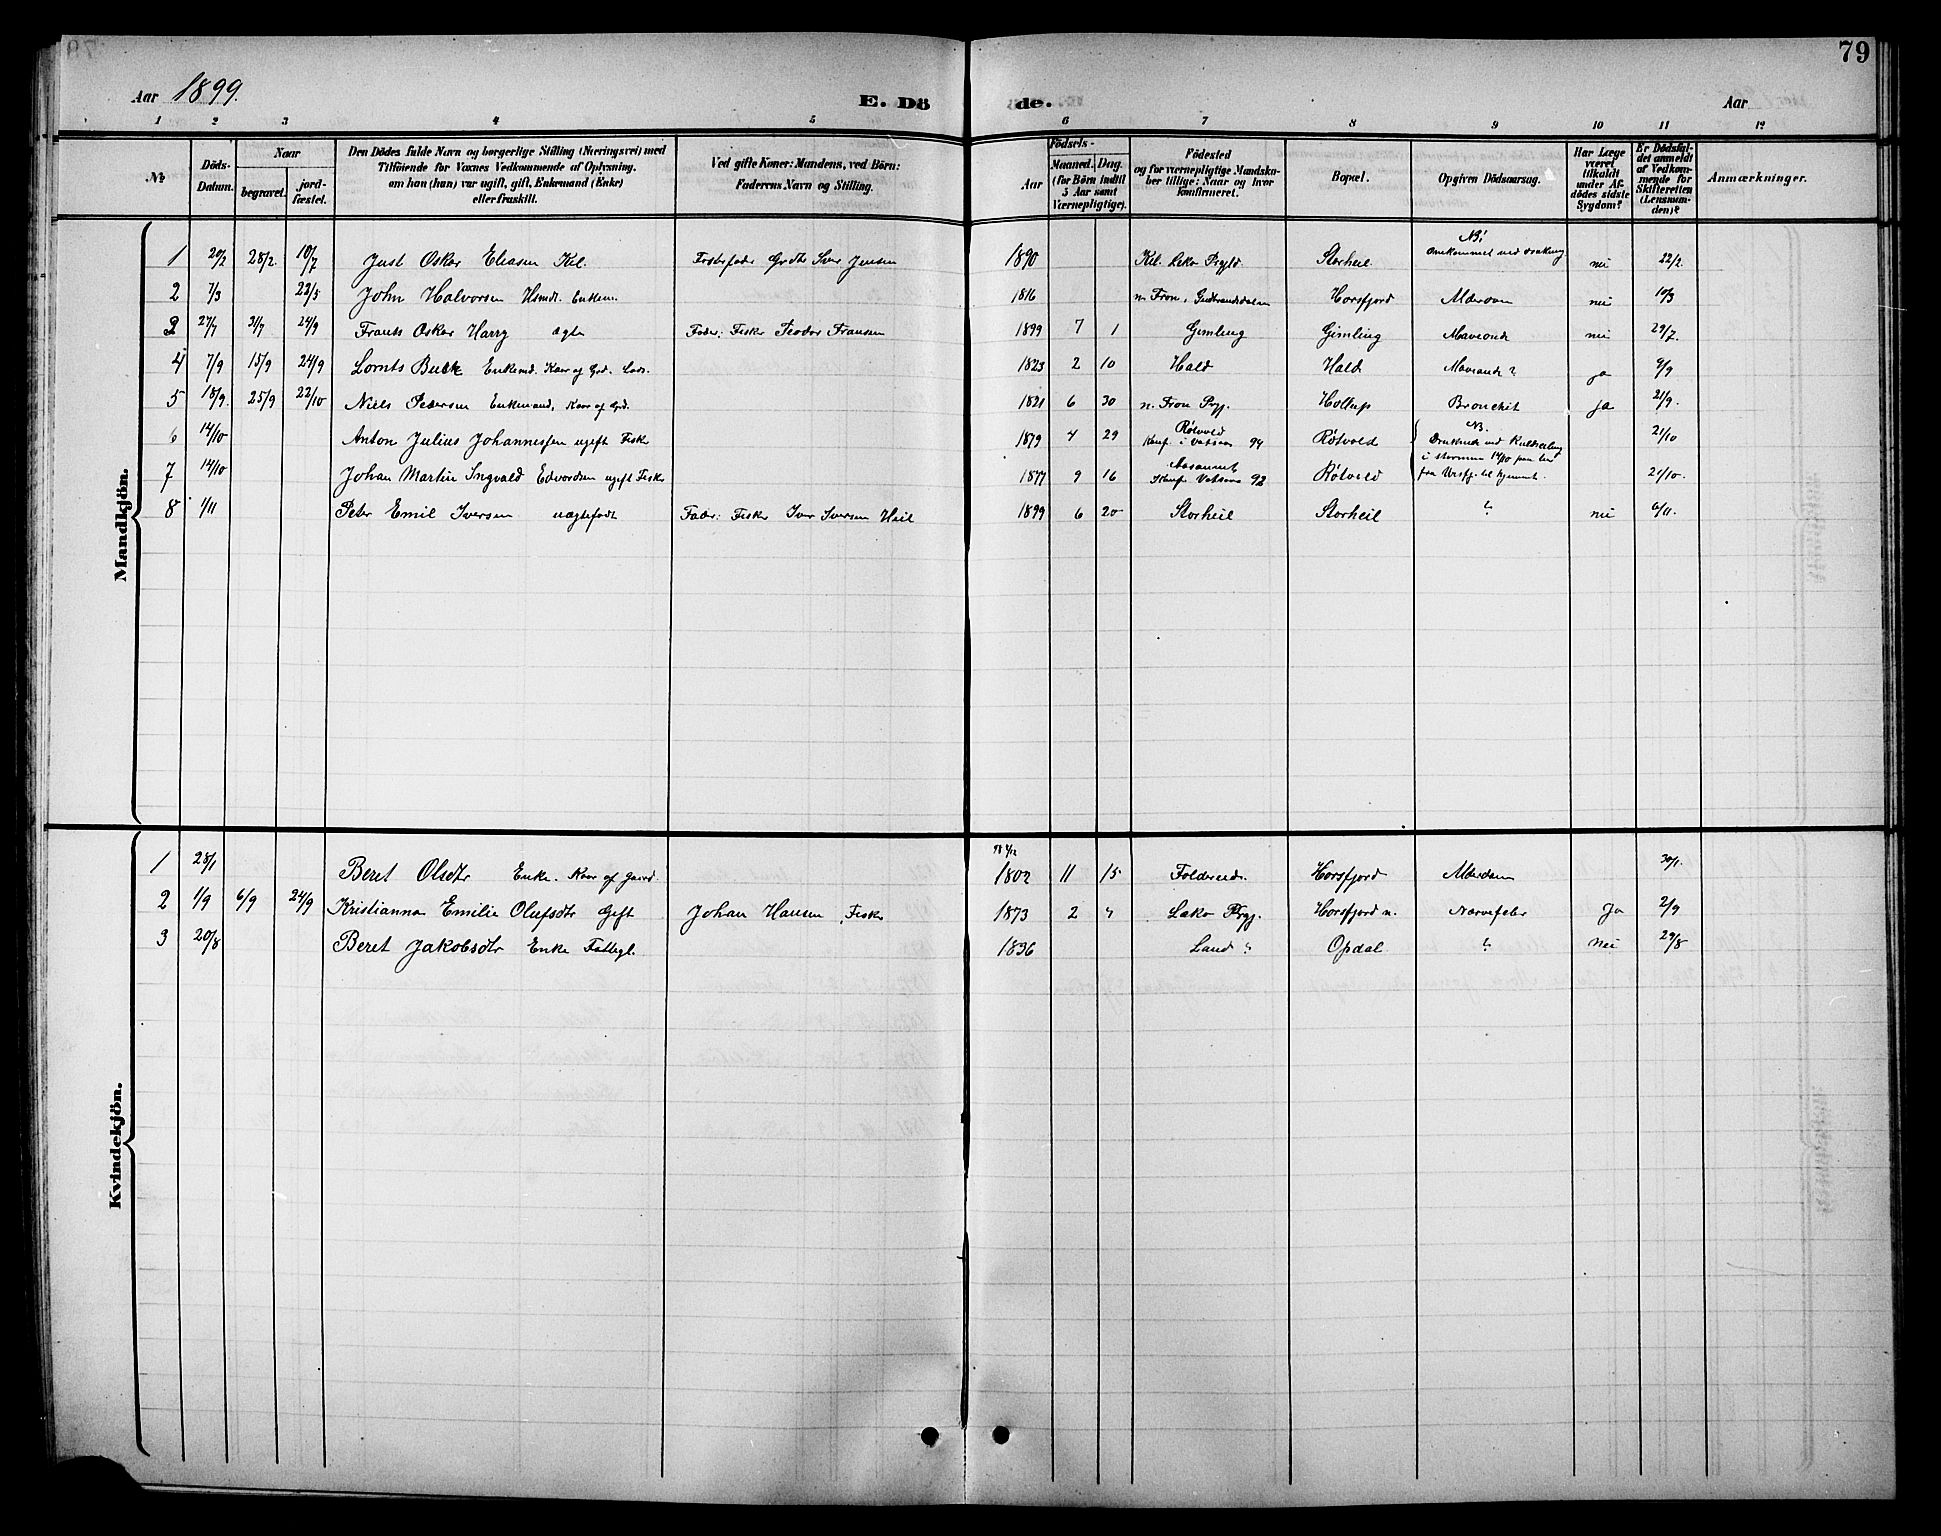 79
Aar 1899.
E. Döde.
Aar
1 2 3 4 5 6 7 8 9 10 11 12
No
Döds-Datum.
Naar
begravet.
jord-fæstet.
Den Dödes fulde Navn og borgerlige Stilling (Næringsvei) med
Tilföiende for Voxnes Vedkommende af Oplysning,
om han (hun) var ugift, gift, Enkemand (Enke)
eller fraskilt.
Ved gifte Koner: Mandens, ved Börn:
Faderens Navn og Stilling.
Födsels-
Aar
Maaned. Dag.
(for Börn indtil
5 Aar samt
Værnepligtige).
Födested
og for værnepligtige Mandska-
ber tillige: Naar og hvor
konfirmeret.
Bopæl.
Opgiven Dödsaarsag.
Har Læge
været
tilkaldt
under Af-
dödes sidste
Sygdom?
Er Dödsfal-
det anmeldt
af Vedkom-
mende for
Skifteretten
(Lensman-
den)?
Anmærkninger.
Mandkjön.
1 20/2 28/2 10/7 Just Oskar Eliasen Kil. Fosterfader Grdbr Iver Jensen 1890 Kil. Leka Prgld Storheil. NB! Omkommet ved drukning nei 22/2.
2 7/3 22/5 John Halvorsen Hsmd. Enkem. 1816 n. Fron, Gudbrandsdalen Horsfjord Alderdom nei 10/3
3 27/7 31/7 24/9 Frants Oskar Harry ægte Fader: Fisker Teodor Fransen 1899 7 1 Gimling Gimling Maveonde nei 29/7.
4 7/9 15/9 24/9 Lornts Buck Enkemd. Kaar og Grd. Lods. 1823 2 10 Hald Hald Maveonde ? ja 9/9
5 18/9. 25/9 22/10 Niels Pedersen Enkemand, Kaar af Grd. 1821 6 30 n. Fron Prgj. Hollup Bronchit ja 21/9.
6 14/10 Anton Julius Johannessen ugift Fisker 1879 4 29 Røtvold Konf. i Vatsaas 94 Røtvold NB. Druknede ved Kuldseiling 21/10
7 14/10 Johan Martin Ingvald Edvardsen ugift Fisker 1877 9 16 Konf. Vatsaas 92 Røtvold i stormen 14/10 paa fra til hjemmet. 21/10.
8 1/11 Peter Emil Iversen uægtefødt Fader: Fisker Iver Iversen Heil 1899 6 20 Storheil Storheil ? nei 6/11.
Kvindekjön.
1 28/1 Beret Olsdtr Enke. Kaar af Gaard. 1802 11 15 Foldereid. Horsfjord Alderdom 30/1.
2 1/9 6/9 24/9 Kristianna Emilie Olufsdtr Gift Johan Hansen, Fisker 1873 2 4 Leka Prgj. Horsfjord n. Nervefeber Ja 2/9
3 20/8 Beret Jakobsdtr Enke Fattigl. 1836 Land " Opdal ? nei 29/8